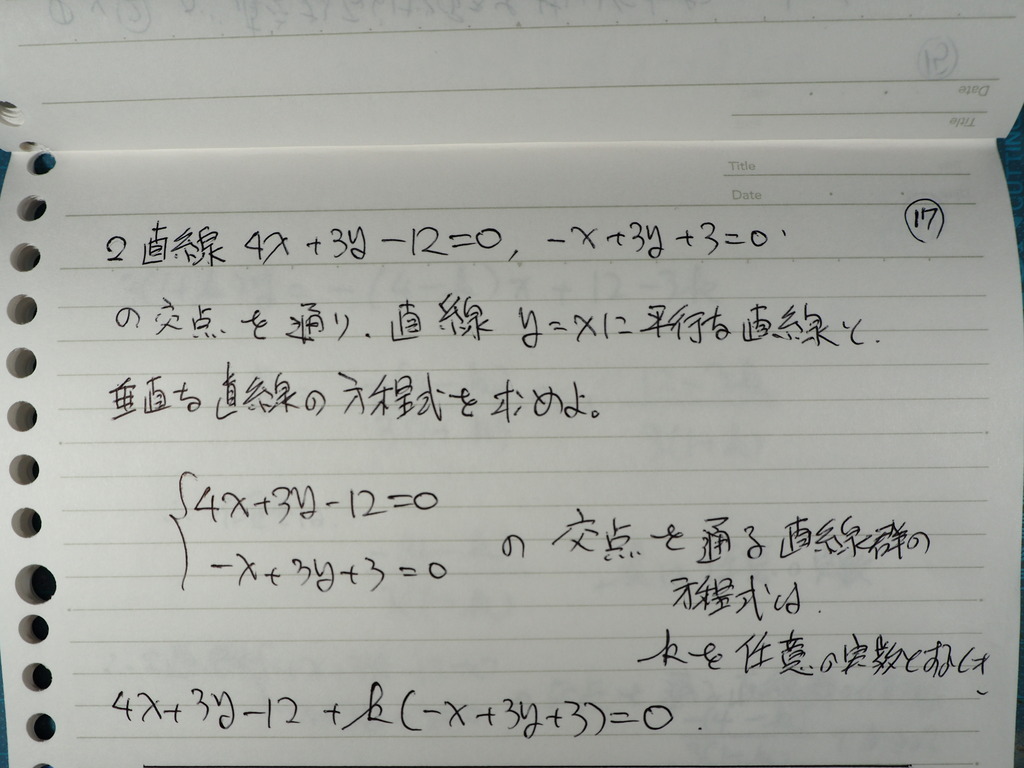 Date
Title
Title
Date
⑰
2直線 4x+3y-12=0, -x+3y+3=0
の交点を通り、直線 y=xに平行な直線と、
垂直な直線の方程式を求めよ。
4x+3y-12=0
-x+3y+3=0
の交点を通る直線群の
方程式は、
kを任意の実数とすれば
4x+3y-12+k(-x+3y+3)=0